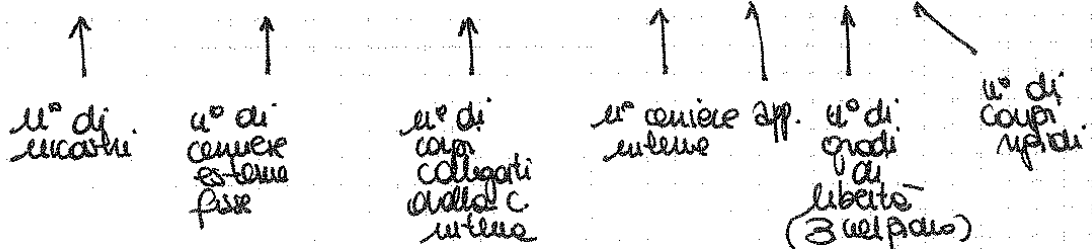 n° di
incastri
n° di
cerniere
esterne
fisse
n° di
corpi
collegati
dalla c.
interna
n° cerniere
interne
app.
n° di
gradi
di
libertà
(3 nel piano)
n° di
corpi
rigidi